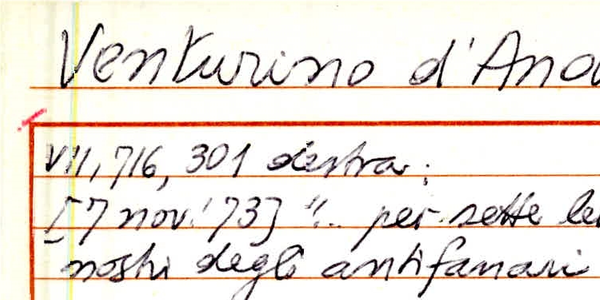 Venturino d'And
VII, 716, 301 destra:
[7 nov. '73] "... per sette le
nostri degli antifanari